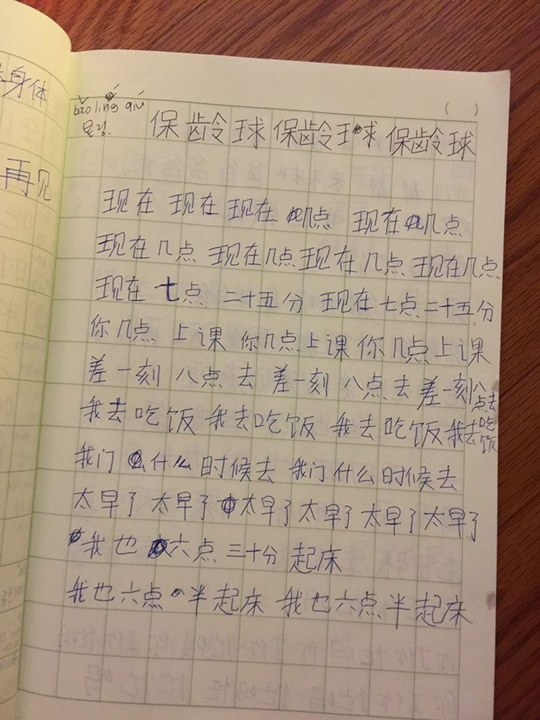 身体
再见
( )
bǎo líng qiú
保龄球 保龄球 保龄球
现在 现在 现在 几点 现在 几点
现在几点 现在几点 现在几点 现在几点
现在 七点 二十五分 现在七点二十五分
你几点 上课 你几点上课 你几点上课
差一刻 八点去 差一刻 八点去 差一刻八点去
我去吃饭 我去吃饭 我去吃饭 我去吃饭
我门 什么时候去 我门什么时候去
太早了 太早了 太早了 太早了 太早了 太早了
我也 六点 三十分 起床
我也六点 半起床 我也六点半起床